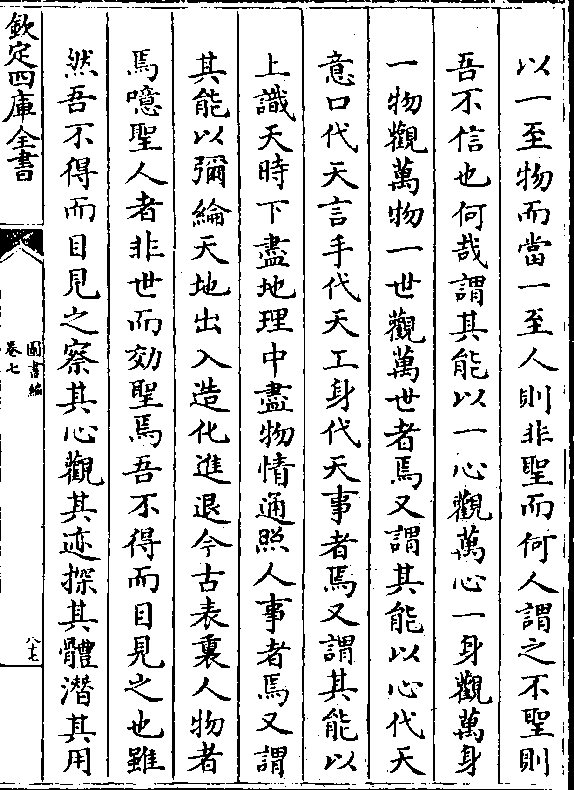 以一至物而當一至人則非聖而何人謂之不聖則
吾不信也何哉謂其能以一心觀萬心一身觀萬身
一物觀萬物一世觀萬世者焉又謂其能以心代天
意口代天言手代天工身代天事者焉又謂其能以
上識天時下盡地理中盡物情通照人事者焉又謂
其能以彌綸天地出入造化進退今古表裏人物者
焉噫聖人者非世而効聖焉吾不得而目見之也雖
然吾不得而目見之察其心觀其迹探其體潛其用
欽定四庫全書
圖書編
卷七
八七